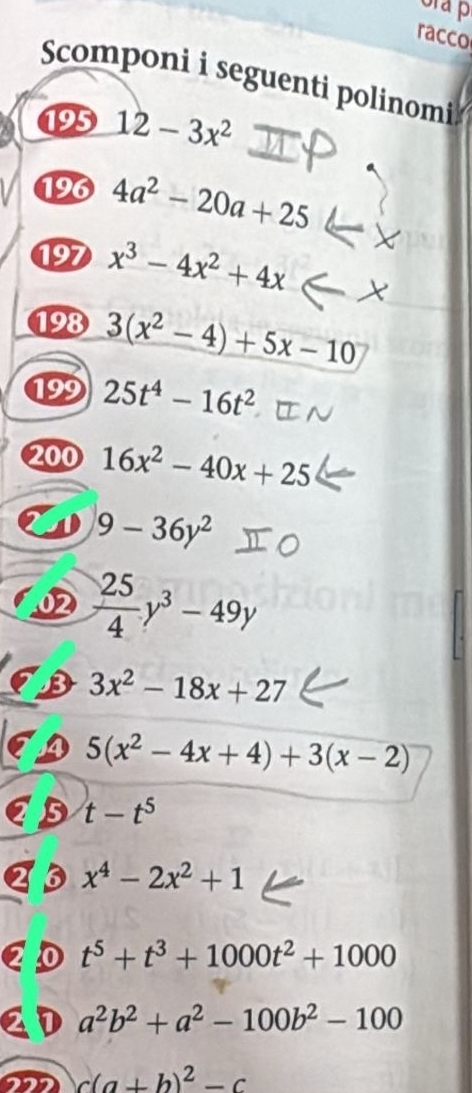 racco
Scomponi i seguenti polinomi
195 12 − 3x² II P
196 4a² − 20a + 25 ← x
197 x³ − 4x² + 4x ← x
198 3(x² − 4) + 5x − 10
199 25t⁴ − 16t² II N
200 16x² − 40x + 25 ←
9 − 36y² II O
02 25/4 y³ − 49y
3 3x² − 18x + 27 ←
4 5(x² − 4x + 4) + 3(x − 2)
2 5 t − t⁵
2 6 x⁴ − 2x² + 1 ←
2 0 t⁵ + t³ + 1000t² + 1000
2 1 a²b² + a² − 100b² − 100
222 c(a + b)² − c